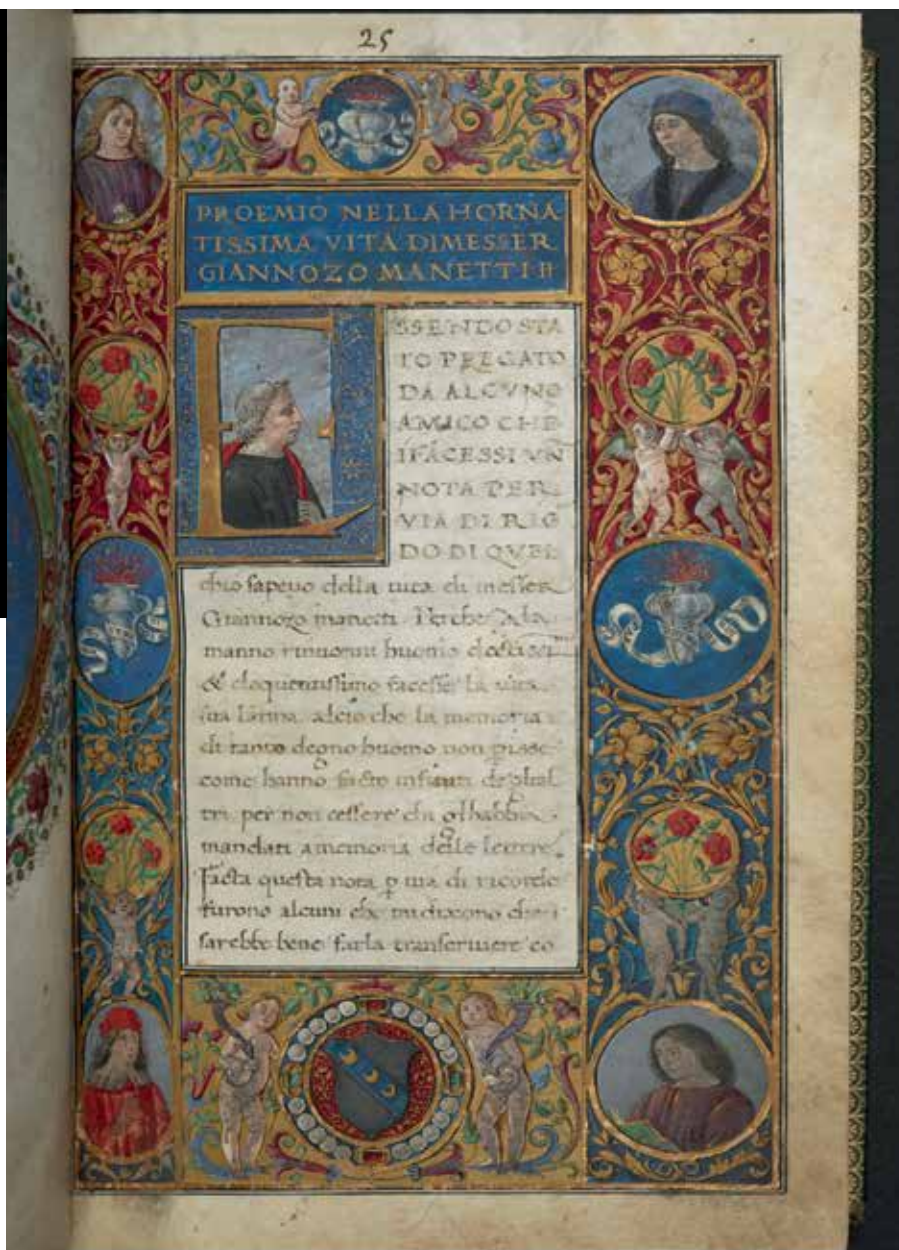 25
PROEMIO NELLA HORNA
TISSIMA VITA DIMESSER
GIANNOZO MANETTI II
ESSENDO STA
TO PREGATO
DA ALCVNO
AMICO CHE
IFACESSI VN̄
NOTA PER
VIA DI RIC
DO DI QVEL
chio sapeuo della uita di messer
Giannozo manetti Perche Ala
manno rinuccini huomo
& eloquentissimo facesse la uita
sua latina. alcio che la memoria
di tanto degno huomo non p̱isse
come hanno facto infiniti deglial
tri per non cessere chi glhabbia
mandati amemoria delle lettere.
Facta questa nota ꝑ uia di ricordo
furono alcuni che mi dixono che
sarebbe bene farla transcriuere co